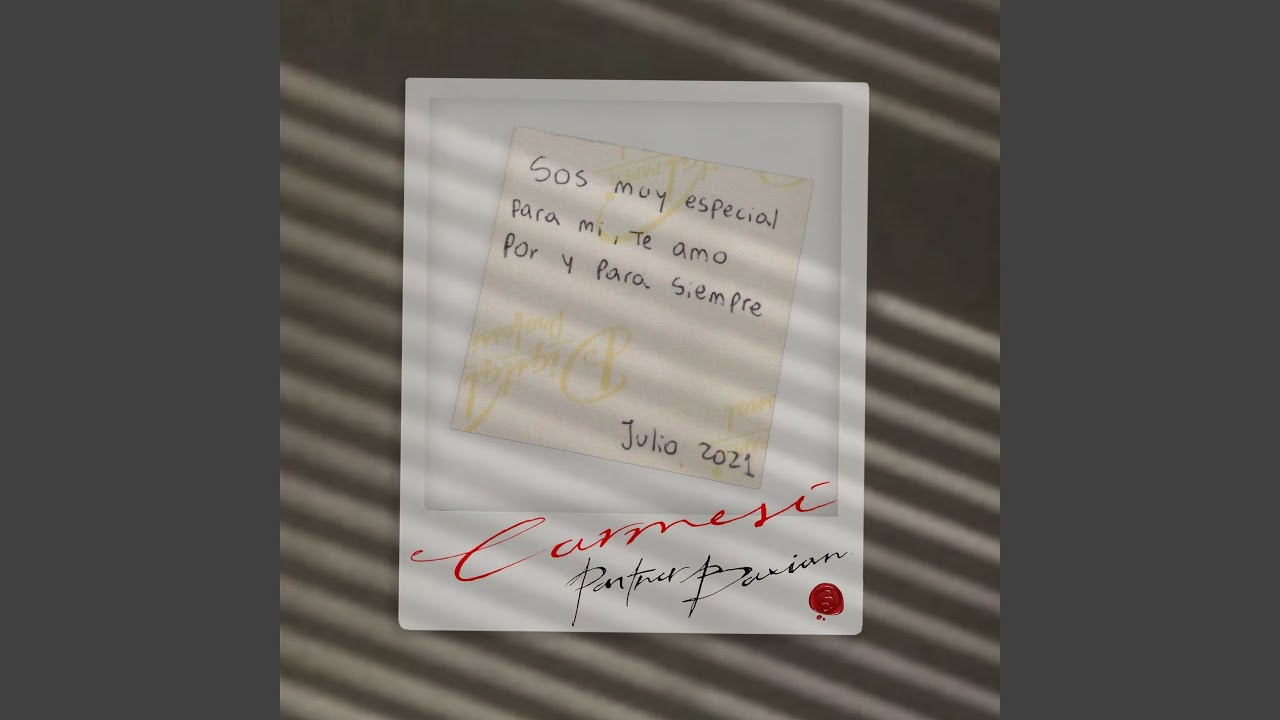 Sos muy especial
para mi, Te amo
Por y para siempre
Julio 2021
Carmesí
Partner Daxian
Digital